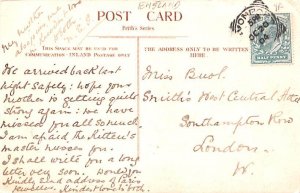 ENGLAND
POST CARD
Pettits Series.
THIS SPACE MAY BE USED FOR
COMMUNICATION. INLAND POSTAGE ONLY
THE ADDRESS ONLY TO BE
WRITTEN HERE.
HALF PENNY
We arrived back last
night Safely: hope your
Mother is getting quite
strong again: we have
missed you all so much
I am afraid the Kitten's
master misses you.
I shall write you a long
letter very soon. Would you
Kindly send address of
Kindest love to both.
Miss Buol
Smith's West Central
Southampton Row
London
W.